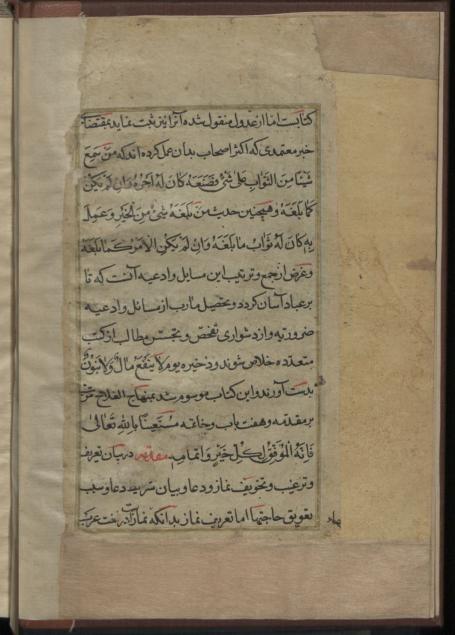 کتابست اما از عدول منقول شده آنرا نیز ثبت نماید بمقتضای
خبر معتمدی که اکثر اصحاب بدان عمل کرده اند که مَنْ سَمِعَ
شَیْئًا مِنَ الثَّوابِ عَلی شَیْءٍ فَصَنَعَهُ کانَ لَهُ اَجْرُهُ وَاِنْ لَمْ یَکُنْ
کَما بَلَغَهُ و همچنین حدیث مَنْ بَلَغَهُ شَیْءٌ مِنَ الْخَیْرِ وَعَمِلَ
بِهِ کانَ لَهُ ثَوابُ ما بَلَغَهُ وَاِنْ لَمْ یَکُنِ الْاَمْرُ کَما بَلَغَهُ
و غرض از جمع و ترتیب این مسایل و ادعیه آنست که تا
بر عباد آسان گردد و تحصیل مآرب از مسائل و ادعیه
ضروریه و از دشواری تفحص و تجسس مطالب از کتب
متعدده خلاص شوند و ذخیره یوم لا یَنْفَعُ مالٌ وَلا بَنُونٌ
بدست آورند و این کتاب موسوم شد بمنهاج الفلاح مرتب
بر مقدمه و هفت باب و خاتمه مُسْتَعینًا بِاللهِ تَعالی
فَاِنَّهُ الْمُوَفِّقُ لِکُلِّ خَیْرٍ وَاِتْمامِهِ مقدمه در بیان تعریف
و ترغیب و تخویف نماز و دعا و بیان شرایط دعا و سبب
تعویق حاجتها اما تعریف نماز بدانکه نماز در لغت عرب